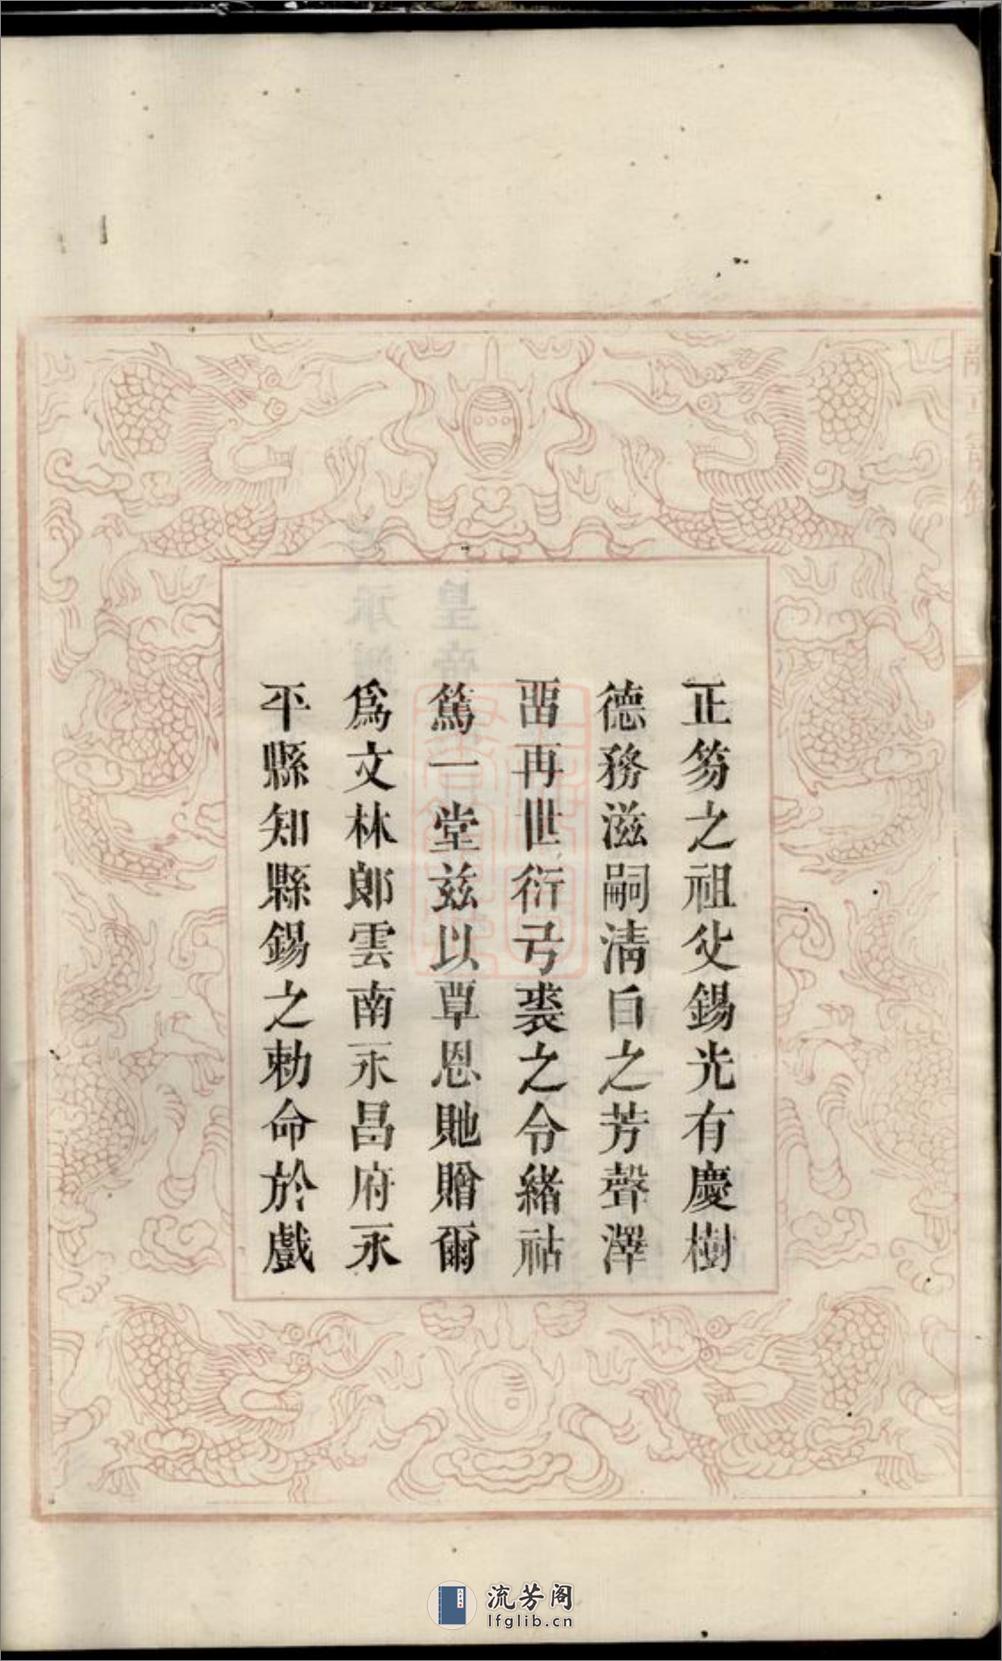 正笏之祖父錫光有慶樹
德務滋嗣淸白之芳聲澤
畱再世衍弓裘之令緒祜
篤一堂兹以覃恩貤贈爾
爲文林郎雲南永昌府永
平縣知縣錫之勅命於戲
流芳阁
lfglib.cn